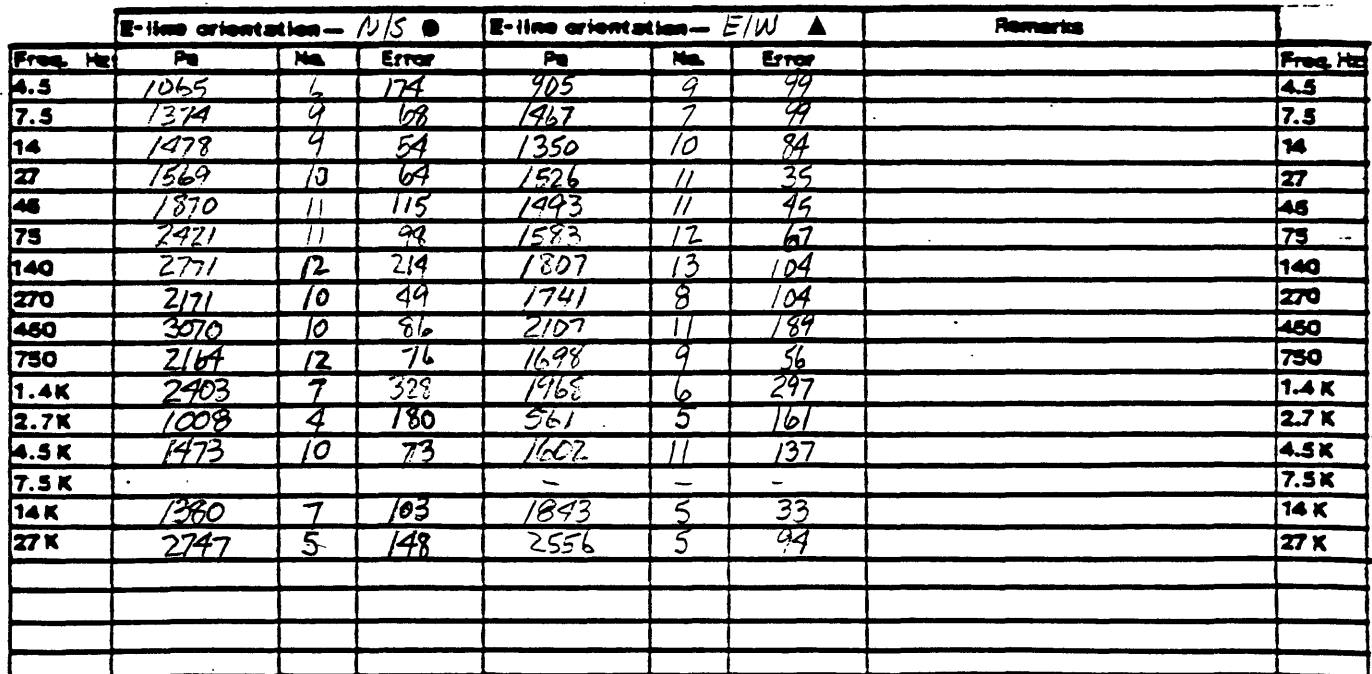 E-line orientation— N/S ● E-line orientation— E/W ▲ Remarks
Freq. Hz Pa No. Error Pa No. Error Freq. Hz
4.5 1065 6 174 905 9 99 4.5
7.5 1374 9 68 1467 7 99 7.5
14 1478 9 54 1350 10 84 14
27 1569 10 64 1526 11 35 27
45 1870 11 115 1493 11 45 45
75 2421 11 98 1583 12 67 75
140 2771 12 214 1807 13 104 140
270 2171 10 49 1741 8 104 270
450 3070 10 86 2107 11 189 450
750 2164 12 76 1698 9 56 750
1.4 K 2403 7 328 1968 6 297 1.4 K
2.7 K 1008 4 180 561 5 161 2.7 K
4.5 K 1473 10 73 1602 11 137 4.5 K
7.5 K - - - 7.5 K
14 K 1380 7 103 1843 5 33 14 K
27 K 2747 5 148 2556 5 94 27 K